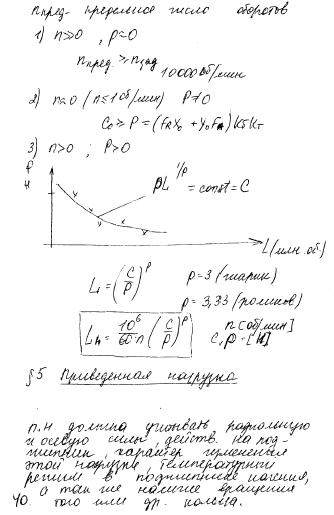 nпред. - предельное число оборотов
1) n≫0 , p=0
nпред. ≥ nзад
10000 об/мин
2) n≈0 (n≤1 об/мин) P≠0
C₀ ≥ P = (FRX₀ + Y₀FA) KδKT
3) n>0 ; P>0
P
H
PL^{1/p} = const = C
L(млн. об.)
L = (C/P)^p
p=3 (шарик)
p=3,33 (роликов)
Lh = 10⁶/60·n (C/P)^p
n [об/мин]
C, P = [H]
§5 Приведенная нагрузка
П.Н должна учитывать радиальную
и осевую силы, действ. на под-
шипник, характер изменения
этой нагрузки, температурный
режим в подшипнике качения,
а также наличие вращения
40. того или др. кольца.